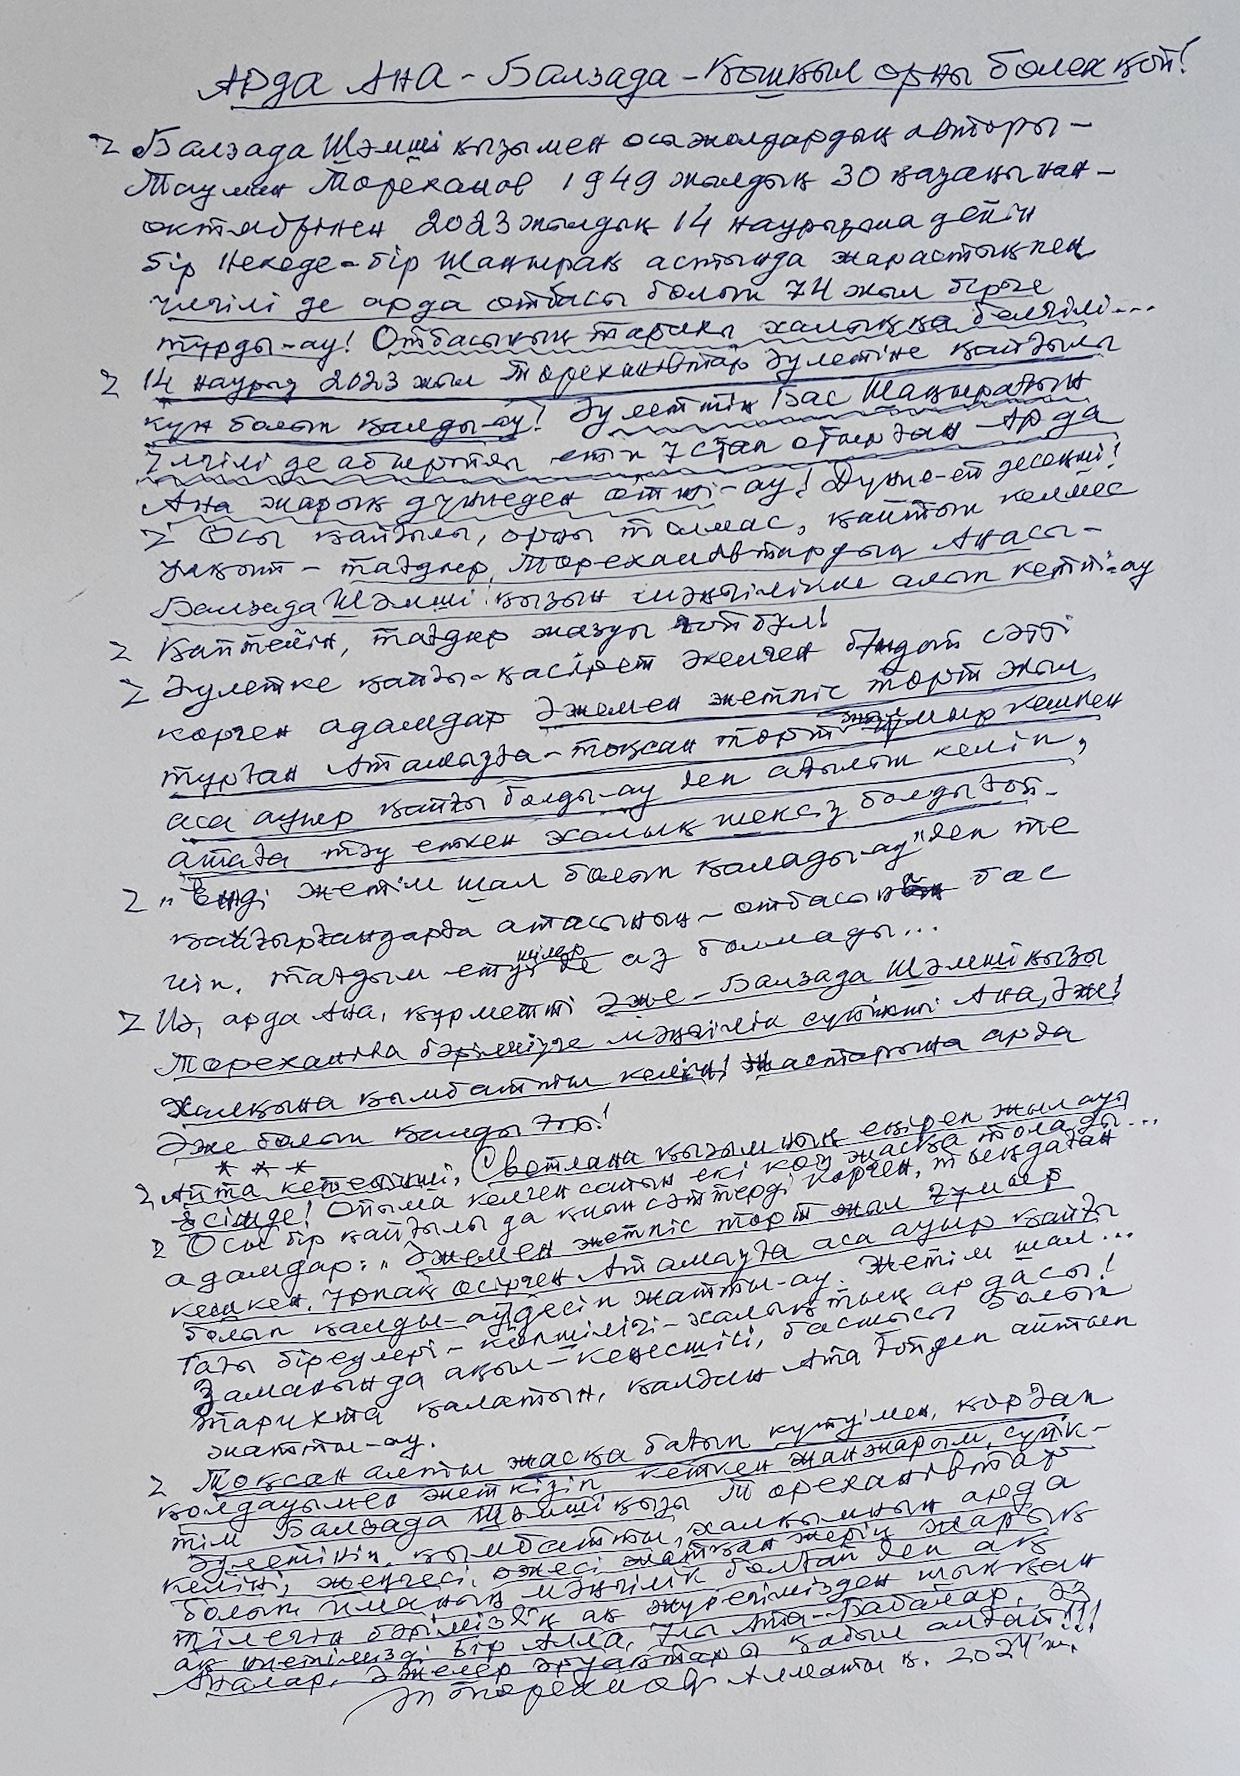 Арда Ана - Балзада - Қошқыл орны бөлек қой!
Балзада Шәмші қызымен осы жолдардың авторы -
Таумен Төреханов 1949 жылдың 30 қазанынан -
октябрінен 2023 жылдың 14 наурызына дейін
бір Некеде - бір Шаңырақ астында жарастықпен
үлгілі де арда отбасы болып 74 жыл бірге
тұрды-ау! Отбасының тарихы халыққа белгілі...
14 наурыз 2023 жыл Төрехановтар Әулетіне қайғылы
күн болып қалды-ау! Әулеттің Бас Шаңырағын
Үлгілі де абыройлы етіп ұстап отырған Арда
Ана жарық дүниеден өтті-ау! Дүние-ай десеңші!
Осы қайғылы, орны толмас, қайтып келмес
уақыт - тағдыр, Төрехановтардың Анасы -
Балзада Шәмші қызын мәңгілікке алып кетті-ау
Қайтейін, тағдыр жазуы ғой бұл!
Әулетке қайғы-қасірет әкелген бұндай сәтті
көрген адамдар Әжемен жетпіс төрт жыл
тұрған Атамызға - тоқсан төрт ғұмыр кешкен
аса ауыр қайғы болды-ау деп ағылып келіп,
атаға тәу еткен халық шексіз болды ғой.
"Енді жетім шал болып қалады-ау" деп те
қайғырғандарға атасының - отбасының бас
иіп, тағдым етушілер де аз болмады...
Иә, арда Ана, құрметті Әже - Балзада Шәмші қызы
Төреханова бәрімізге мәңгілік сүйікті Ана, Әже!
Халқына қымбатты келін! Жастарына арда
Әже болып қалды ғой!
* * *
Айта кетейінші, Светлана қызымның еңіреп жылауы
есімде! Ойыма келген сайын екі көз жасқа толады...
Осы бір қайғылы да қиын сәттерді көрген, тыңдаған
адамдар: "Әжемен жетпіс төрт жыл ғұмыр
кешкен, ұрпақ өсірген Атамызға аса ауыр қайғы
болып қалды-ау" десіп жатты-ау. Жетім шал...
Тағы біреулері - көпшілігі - халықтың ардасы!
Заманында ақыл-кеңесшісі, басшысы болып
тарихта қалатын, қалған Ата ғой деп айтып
жатты-ау.
Тоқсан алты жасқа бағып күтуімен, қорған
қолдауымен жеткізіп кеткен жан жарым, сүйік-
тім Балзада Шәмші қызы Төрехановтар
Әулетінің, қымбатты, халқымның арда
келіні, жеңгесі, әжесі жатқан жерің жарық
болып иманың мәңгілік болғай деп ақ
тілегің бәріміздің ақ жүрегімізден шыққан
ақ ниетімізді Бір Алла, Ұлы Ата-Бабалар, Әз
Аналар, Әжелер әруақтары қабыл алғай!!!
Т Төреханов. Алматы қ. 2024 ж.